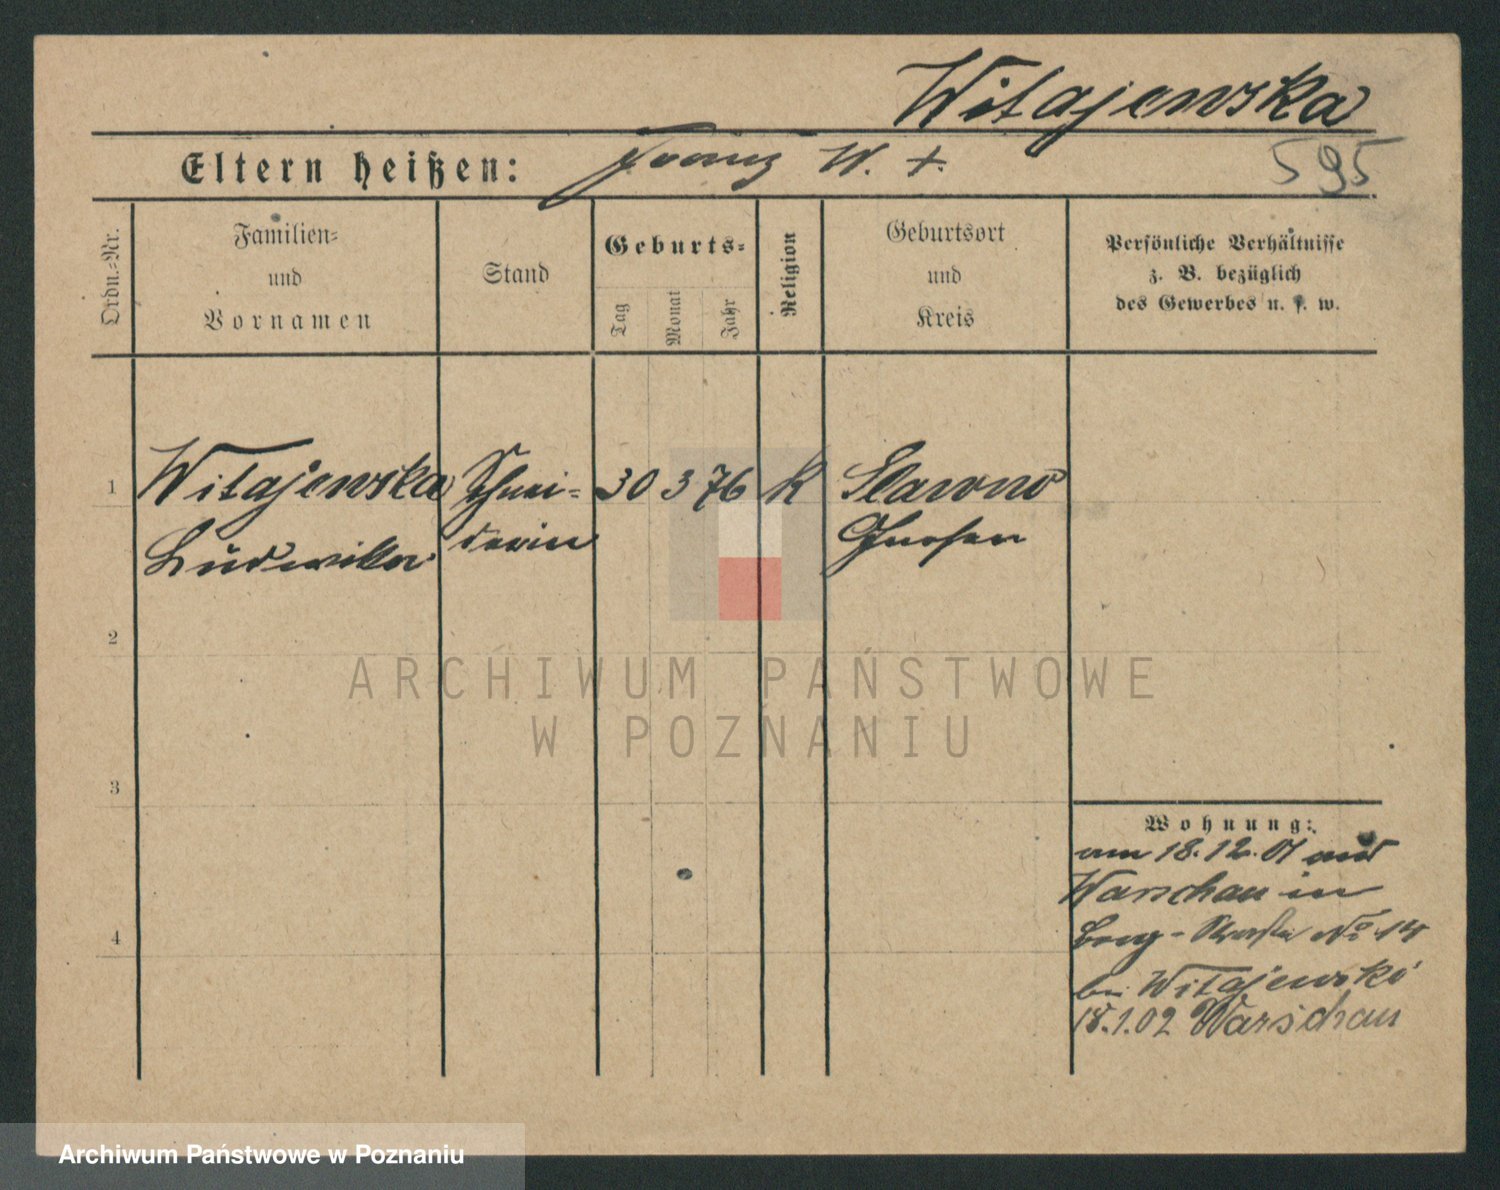 Witajewska
Eltern heißen: Franz W. +.
595
Ordn.-Nr.
Familien-
und
Vornamen
Stand
Geburts-
Tag
Monat
Jahr
Religion
Geburtsort
und
Kreis
Persönliche Verhältnisse
z. B. bezüglich
des Gewerbes u. s. w.
1 Witajewska Schnei- 30 3 76 K Slawno
Ludwika derin Gnesen
2
3
4
Wohnung:
am 18.12.01 aus
Warschau in
Berg-Straße No 14
bei Witajewski
18.1.02 Warschau
ARCHIWUM PAŃSTWOWE
W POZNANIU
Archiwum Państwowe w Poznaniu